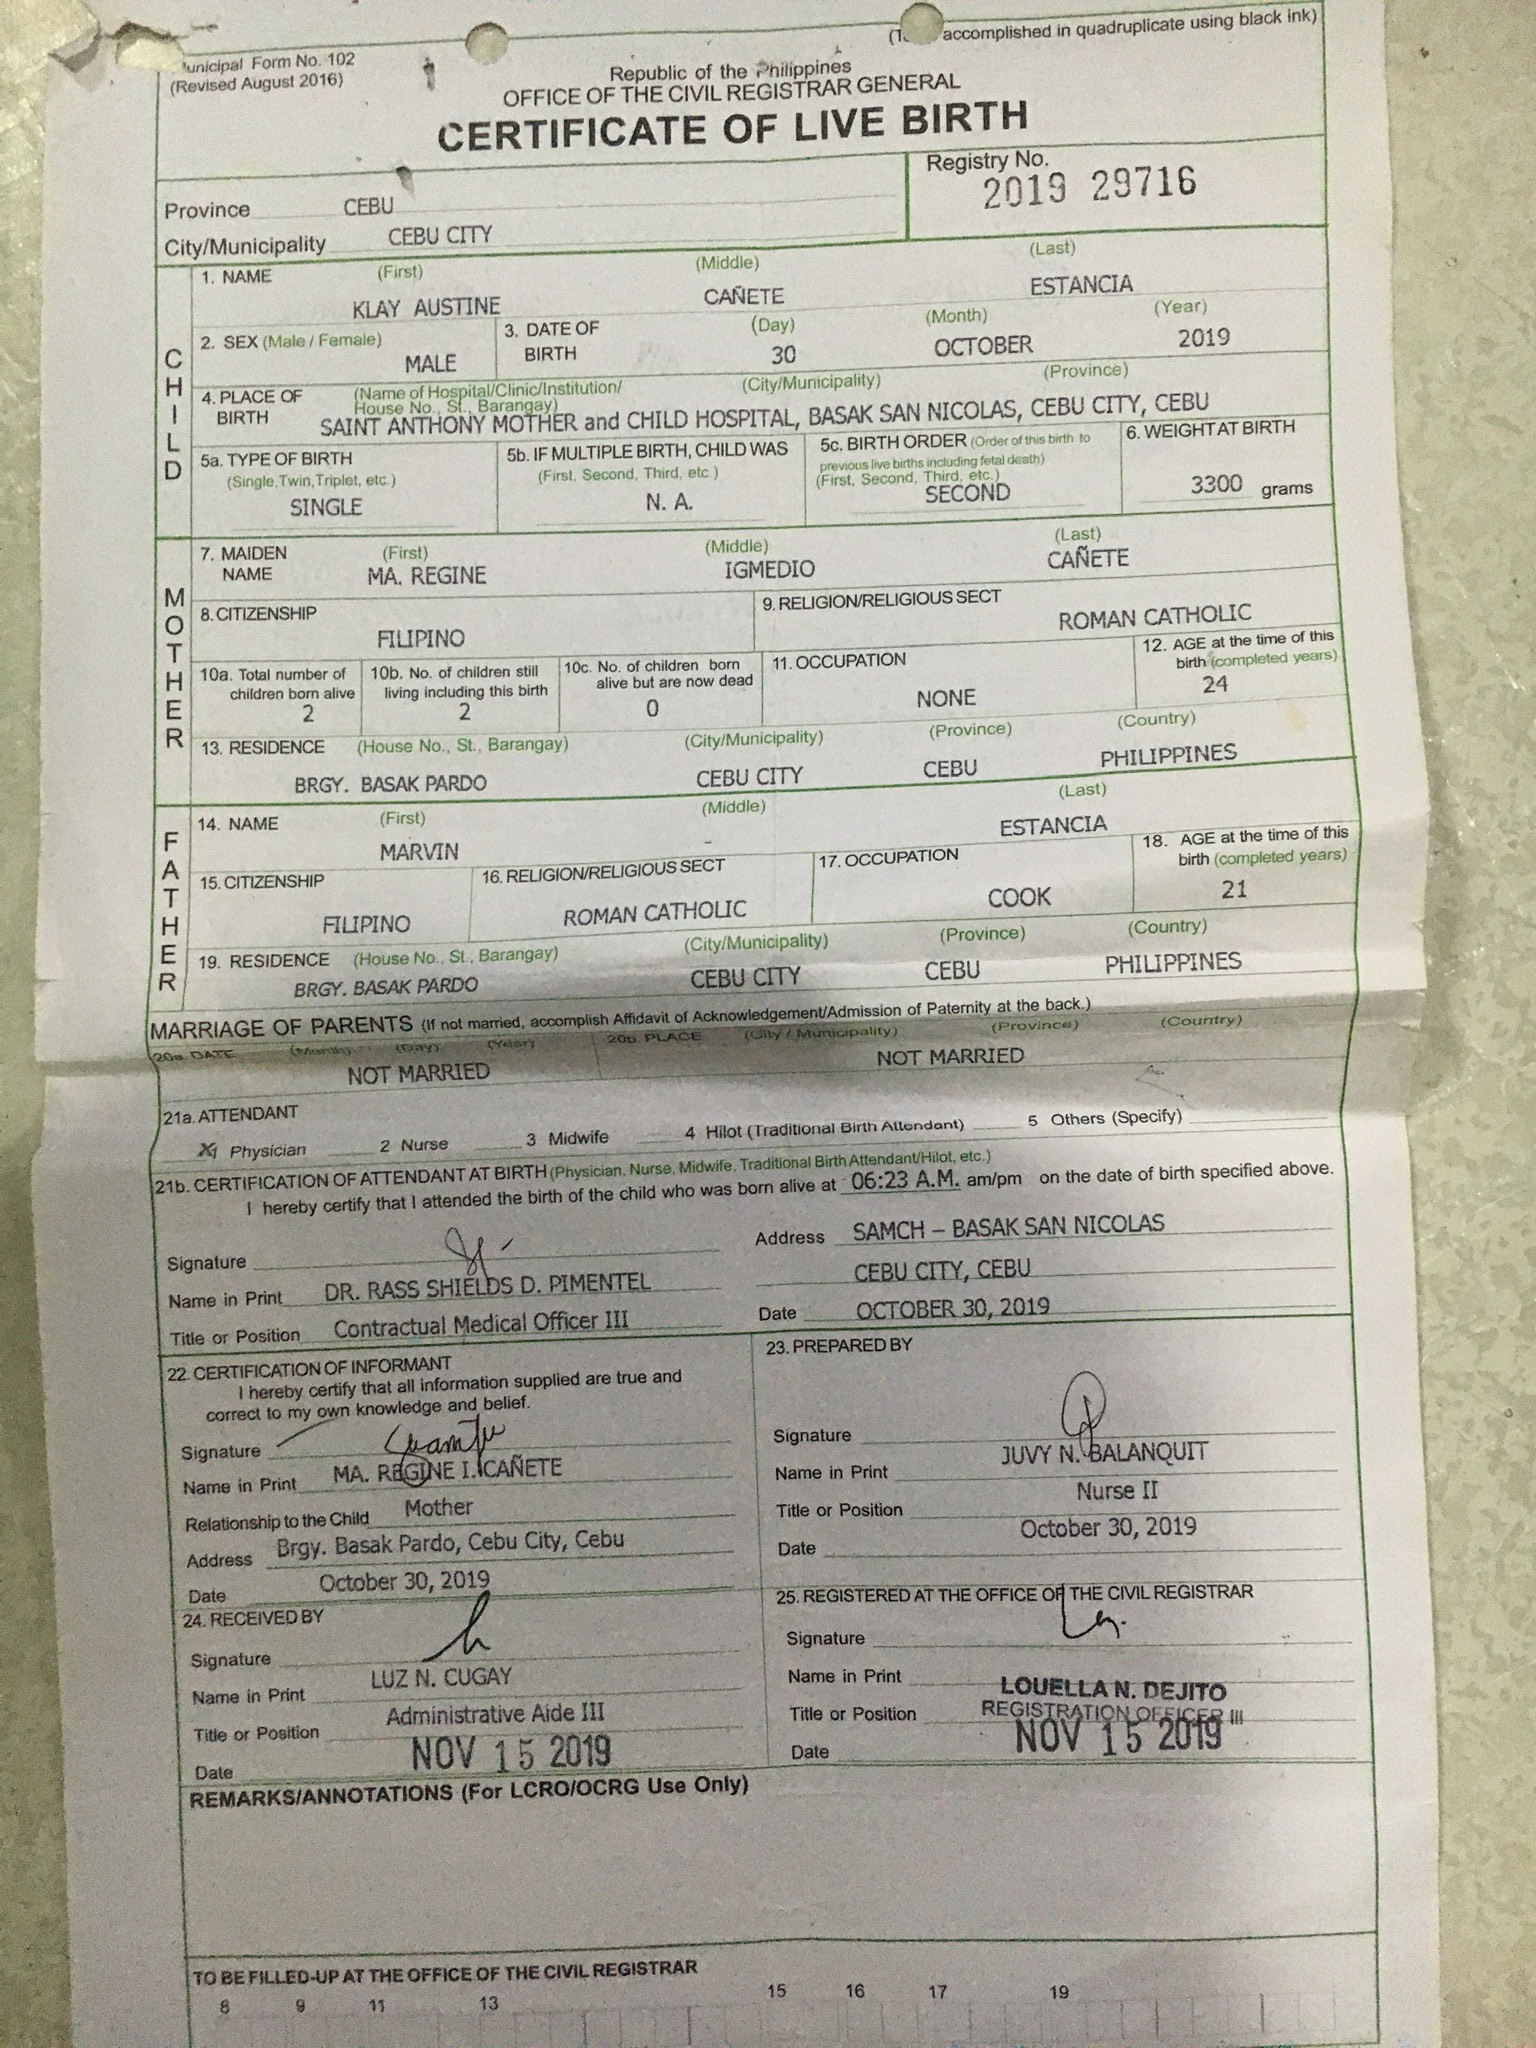 unicipal Form No. 102
(Revised August 2016)
accomplished in quadruplicate using black ink)
Republic of the Philippines
OFFICE OF THE CIVIL REGISTRAR GENERAL
CERTIFICATE OF LIVE BIRTH
Province CEBU
City/Municipality CEBU CITY
Registry No.
2019 29716
CHILD
1. NAME (First) (Middle) (Last)
KLAY AUSTINE CAÑETE ESTANCIA
2. SEX (Male / Female) MALE
3. DATE OF BIRTH (Day) (Month) (Year)
30 OCTOBER 2019
4. PLACE OF BIRTH (Name of Hospital/Clinic/Institution/ House No., St., Barangay) (City/Municipality) (Province)
SAINT ANTHONY MOTHER and CHILD HOSPITAL, BASAK SAN NICOLAS, CEBU CITY, CEBU
5a. TYPE OF BIRTH
(Single,Twin,Triplet, etc.)
SINGLE
5b. IF MULTIPLE BIRTH, CHILD WAS
(First, Second, Third, etc.)
N. A.
5c. BIRTH ORDER (Order of this birth to
previous live births including fetal death)
(First, Second, Third, etc.)
SECOND
6. WEIGHT AT BIRTH
3300 grams
MOTHER
7. MAIDEN NAME (First) (Middle) (Last)
MA. REGINE IGMEDIO CAÑETE
8. CITIZENSHIP
FILIPINO
9. RELIGION/RELIGIOUS SECT
ROMAN CATHOLIC
10a. Total number of
children born alive
2
10b. No. of children still
living including this birth
2
10c. No. of children born
alive but are now dead
0
11. OCCUPATION
NONE
12. AGE at the time of this
birth (completed years)
24
13. RESIDENCE (House No., St., Barangay) (City/Municipality) (Province) (Country)
BRGY. BASAK PARDO CEBU CITY CEBU PHILIPPINES
FATHER
14. NAME (First) (Middle) (Last)
MARVIN - ESTANCIA
15. CITIZENSHIP
FILIPINO
16. RELIGION/RELIGIOUS SECT
ROMAN CATHOLIC
17. OCCUPATION
COOK
18. AGE at the time of this
birth (completed years)
21
19. RESIDENCE (House No., St., Barangay) (City/Municipality) (Province) (Country)
BRGY. BASAK PARDO CEBU CITY CEBU PHILIPPINES
MARRIAGE OF PARENTS (If not married, accomplish Affidavit of Acknowledgement/Admission of Paternity at the back.)
20a. DATE (Month) (Day) (Year)
NOT MARRIED
20b. PLACE (City / Municipality) (Province) (Country)
NOT MARRIED
21a. ATTENDANT
X 1 Physician 2 Nurse 3 Midwife 4 Hilot (Traditional Birth Attendant) 5 Others (Specify)
21b. CERTIFICATION OF ATTENDANT AT BIRTH (Physician, Nurse, Midwife, Traditional Birth Attendant/Hilot, etc.)
I hereby certify that I attended the birth of the child who was born alive at 06:23 A.M. am/pm on the date of birth specified above.
Signature
Name in Print DR. RASS SHIELDS D. PIMENTEL
Title or Position Contractual Medical Officer III
Address SAMCH – BASAK SAN NICOLAS
CEBU CITY, CEBU
Date OCTOBER 30, 2019
22. CERTIFICATION OF INFORMANT
I hereby certify that all information supplied are true and
correct to my own knowledge and belief.
Signature
Name in Print MA. REGINE I. CAÑETE
Relationship to the Child Mother
Address Brgy. Basak Pardo, Cebu City, Cebu
Date October 30, 2019
23. PREPARED BY
Signature
Name in Print JUVY N. BALANQUIT
Title or Position Nurse II
Date October 30, 2019
24. RECEIVED BY
Signature
Name in Print LUZ N. CUGAY
Title or Position Administrative Aide III
Date NOV 15 2019
25. REGISTERED AT THE OFFICE OF THE CIVIL REGISTRAR
Signature
Name in Print LOUELLA N. DEJITO
Title or Position REGISTRATION OFFICER III
Date NOV 15 2019
REMARKS/ANNOTATIONS (For LCRO/OCRG Use Only)
TO BE FILLED-UP AT THE OFFICE OF THE CIVIL REGISTRAR
8 9 11 13 15 16 17 19